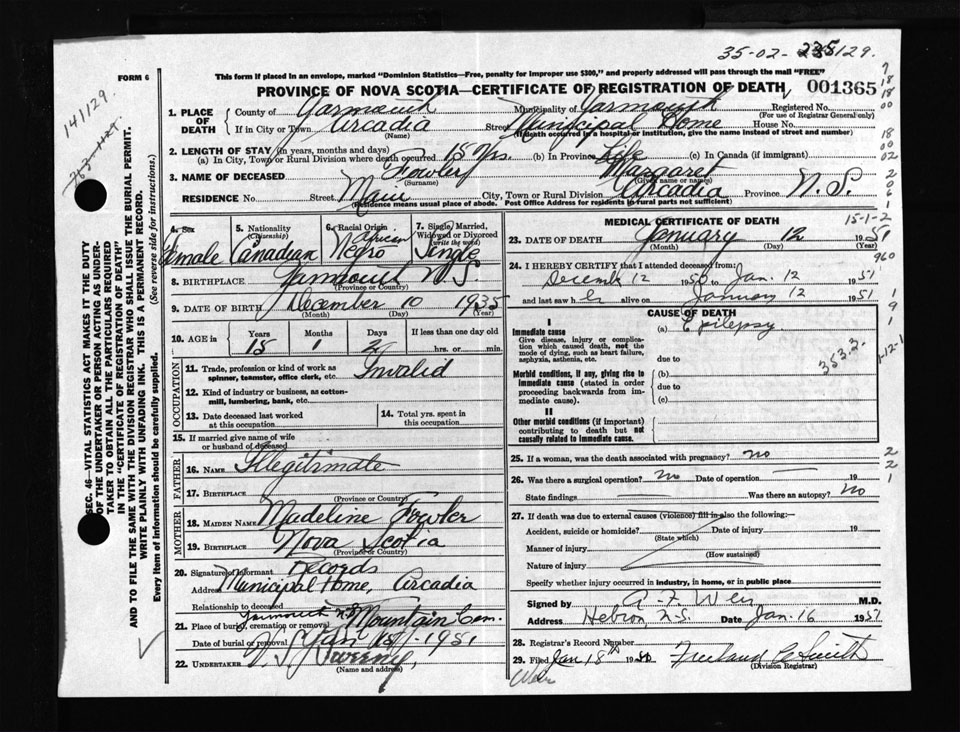 35-02- 235 129.
FORM 6
This form if placed in an envelope, marked "Dominion Statistics—Free, penalty for improper use $300," and properly addressed will pass through the mail "FREE"
PROVINCE OF NOVA SCOTIA—CERTIFICATE OF REGISTRATION OF DEATH 001365
141129.
1. PLACE OF DEATH
County of Yarmouth Municipality of Yarmouth Registered No.
(For use of Registrar General only)
If in City or Town Arcadia Street Municipal Home House No.
(Name) (If death occurred in a hospital or institution, give name instead of street and number)
2. LENGTH OF STAY (in years, months and days)
(a) In City, Town or Rural Division where death occurred 15 yrs. (b) In Province Life (c) In Canada (if immigrant)
3. NAME OF DECEASED Fowler Margaret
(Surname) (Given name or names)
RESIDENCE No. Street Main City, Town or Rural Division Arcadia Province N.S.
(Residence means usual place of abode. Post Office Address for residents in rural parts not sufficient)
4. Sex Female
5. Nationality (Citizenship) Canadian
6. Racial Origin African Negro
7. Single, Married, Widowed or Divorced (write the word) Single
8. BIRTHPLACE Yarmouth N.S.
(Province or Country)
9. DATE OF BIRTH December 10 1935
(Month) (Day) (Year)
10. AGE in Years Months Days If less than one day old
15 1 2 hrs. or min.
OCCUPATION
11. Trade, profession or kind of work as spinner, teamster, office clerk, etc. Invalid
12. Kind of industry or business, as cotton-mill, lumbering, bank, etc.
13. Date deceased last worked at this occupation
14. Total yrs. spent in this occupation
15. If married give name of wife or husband of deceased
FATHER
16. NAME Illegitimate
17. BIRTHPLACE
(Province or Country)
MOTHER
18. MAIDEN NAME Madeline Fowler
19. BIRTHPLACE Nova Scotia
(Province or Country)
20. Signature of Informant Records
Address Municipal Home, Arcadia
Relationship to deceased
21. Place of burial, cremation or removal Yarmouth N.S. Mountain Cem.
Date of burial or removal Jan 1951
22. UNDERTAKER V S Sweeny,
(Name and address)
MEDICAL CERTIFICATE OF DEATH
15-1-2
23. DATE OF DEATH January 12 1951
(Month) (Day) (Year)
960
24. I HEREBY CERTIFY that I attended deceased from:
December 12 1950 to Jan. 12 1951
and last saw h er alive on January 12 1951
CAUSE OF DEATH
I
Immediate cause (a) Epilepsy
Give disease, injury or complication which caused death, not the mode of dying, such as heart failure, asphyxia, asthenia, etc.
due to
353.3
Morbid conditions, if any, giving rise to immediate cause (stated in order proceeding backwards from immediate cause).
(b)
due to
(c)
II
Other morbid conditions (if important) contributing to death but not causally related to immediate cause.
25. If a woman, was the death associated with pregnancy? no
26. Was there a surgical operation? no Date of operation 19
State findings Was there an autopsy? no
27. If death was due to external causes (violence) fill in also the following:—
Accident, suicide or homicide? Date of injury 19
(State which)
Manner of injury
(How sustained)
Nature of injury
Specify whether injury occurred in industry, in home, or in public place
Signed by A. F. Weir M.D.
Address Hebron, N.S. Date Jan. 16 1951
28. Registrar's Record Number
29. Filed Jan 18th 19
(Division Registrar)
Weir
SEC. 46—VITAL STATISTICS ACT MAKES IT THE DUTY
OF THE UNDERTAKER OR PERSON ACTING AS UNDER-
TAKER TO OBTAIN ALL THE PARTICULARS REQUIRED
IN THE "CERTIFICATE OF REGISTRATION OF DEATH"
AND TO FILE THE SAME WITH THE DIVISION REGISTRAR WHO SHALL ISSUE THE BURIAL PERMIT.
WRITE PLAINLY WITH UNFADING INK. THIS IS A PERMANENT RECORD.
Every item of information should be carefully supplied. (See reverse side for instructions.)